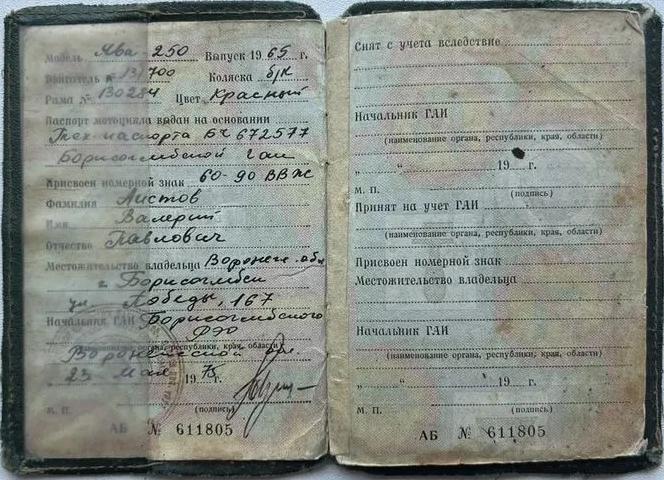 Модель Ява 250 Выпуск 1965 г.
Двигатель № 131700 Коляска б/к
Рама № 130254 Цвет Красный
Паспорт мотоцикла выдан на основании
Тех паспорта БЧ 672577
Борисоглебской Гаи
Присвоен номерной знак 60-90 ВВЖ
Фамилия Листов
Имя Валерий
Отчество Павлович
Местожительство владельца Воронеж. обл
г. Борисоглебск
ул Победы, 167
Начальник ГАИ Борисоглебского
РЭО
(наименование органа, республики, края, области)
Воронежской обл.
„ 23 “ Мая 1975 г.
М. П. (подпись)
АБ № 611805
Снят с учета вследствие
Начальник ГАИ
(наименование органа, республики, края, области)
„ “ 19 г.
М. П. (подпись)
Принят на учет ГАИ
(наименование органа, республики, края, области)
Присвоен номерной знак
Местожительство владельца
Начальник ГАИ
(наименование органа, республики, края, области)
„ “ 19 г.
М. П. (подпись)
АБ № 611805